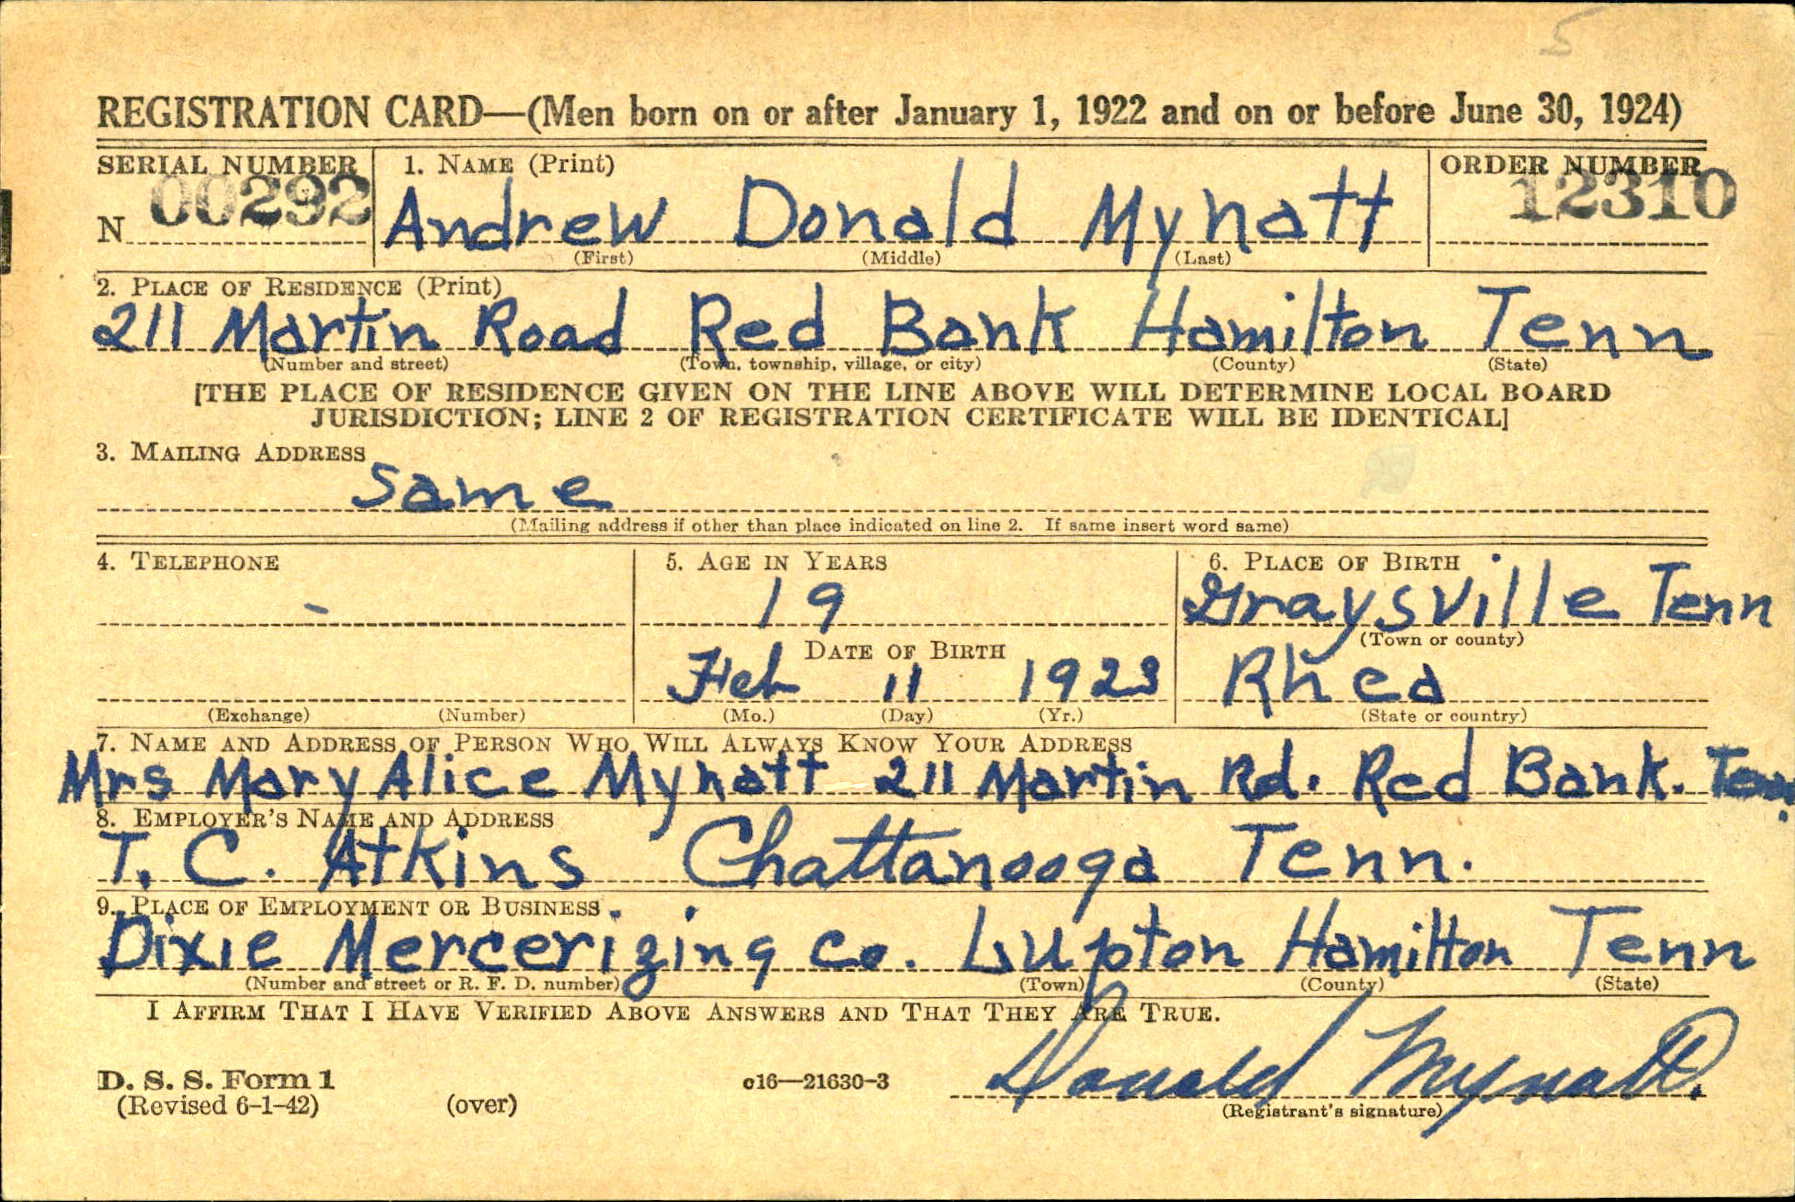 5
REGISTRATION CARD—(Men born on or after January 1, 1922 and on or before June 30, 1924)
SERIAL NUMBER 1. NAME (Print) ORDER NUMBER
N 00292 Andrew Donald Mynatt 12310
(First) (Middle) (Last)
2. PLACE OF RESIDENCE (Print)
211 Martin Road Red Bank Hamilton Tenn
(Number and street) (Town, township, village, or city) (County) (State)
[THE PLACE OF RESIDENCE GIVEN ON THE LINE ABOVE WILL DETERMINE LOCAL BOARD
JURISDICTION; LINE 2 OF REGISTRATION CERTIFICATE WILL BE IDENTICAL]
3. MAILING ADDRESS
Same
(Mailing address if other than place indicated on line 2. If same insert word same)
4. TELEPHONE 5. AGE IN YEARS 6. PLACE OF BIRTH
- 19 Graysville Tenn
(Town or county)
DATE OF BIRTH
Feb 11 1923 Rhea
(Exchange) (Number) (Mo.) (Day) (Yr.) (State or country)
7. NAME AND ADDRESS OF PERSON WHO WILL ALWAYS KNOW YOUR ADDRESS
Mrs Mary Alice Mynatt 211 Martin Rd. Red Bank. Tenn.
8. EMPLOYER'S NAME AND ADDRESS
T. C. Atkins Chattanooga Tenn.
9. PLACE OF EMPLOYMENT OR BUSINESS
Dixie Mercerizing Co. Lupton Hamilton Tenn
(Number and street or R. F. D. number) (Town) (County) (State)
I AFFIRM THAT I HAVE VERIFIED ABOVE ANSWERS AND THAT THEY ARE TRUE.
D. S. S. Form 1
(Revised 6-1-42) (over) c16—21630-3 Donald Mynatt.
(Registrant's signature)